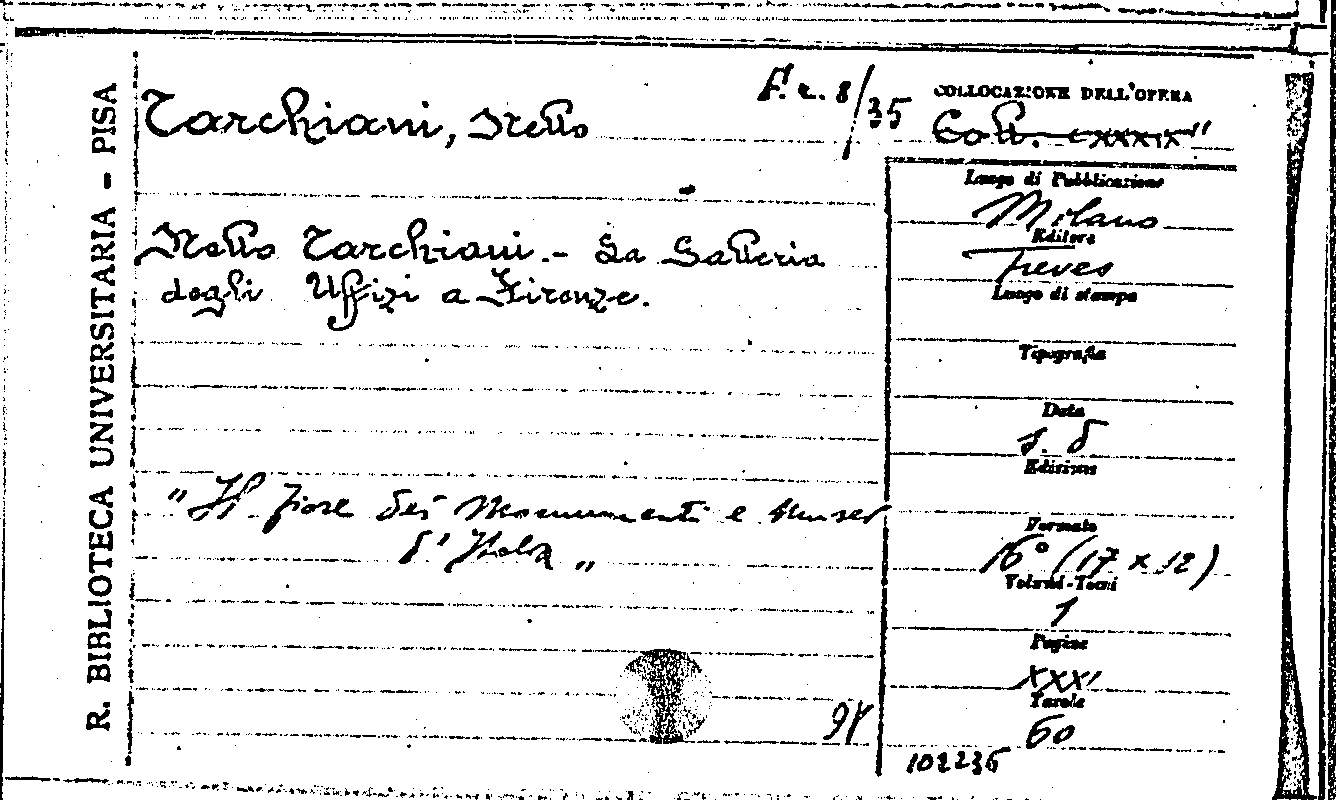 R. BIBLIOTECA UNIVERSITARIA - PISA
Tarchiani, Nello
F. r. 8/35
COLLOCAZIONE DELL'OPERA
Coll. CXXXIX"
Nello Tarchiani.- La Galleria
degli Uffizi a Firenze.
"Il fiore dei Monumenti e Musei
d'Italia"
94
Luogo di Pubblicazione
Milano
Editore
Treves
Luogo di stampa
Tipografia
Data
s. d
Edizione
Formato
16° (17 x 12)
Volumi-Tomi
1
Pagine
XXXI
Tavole
60
102236